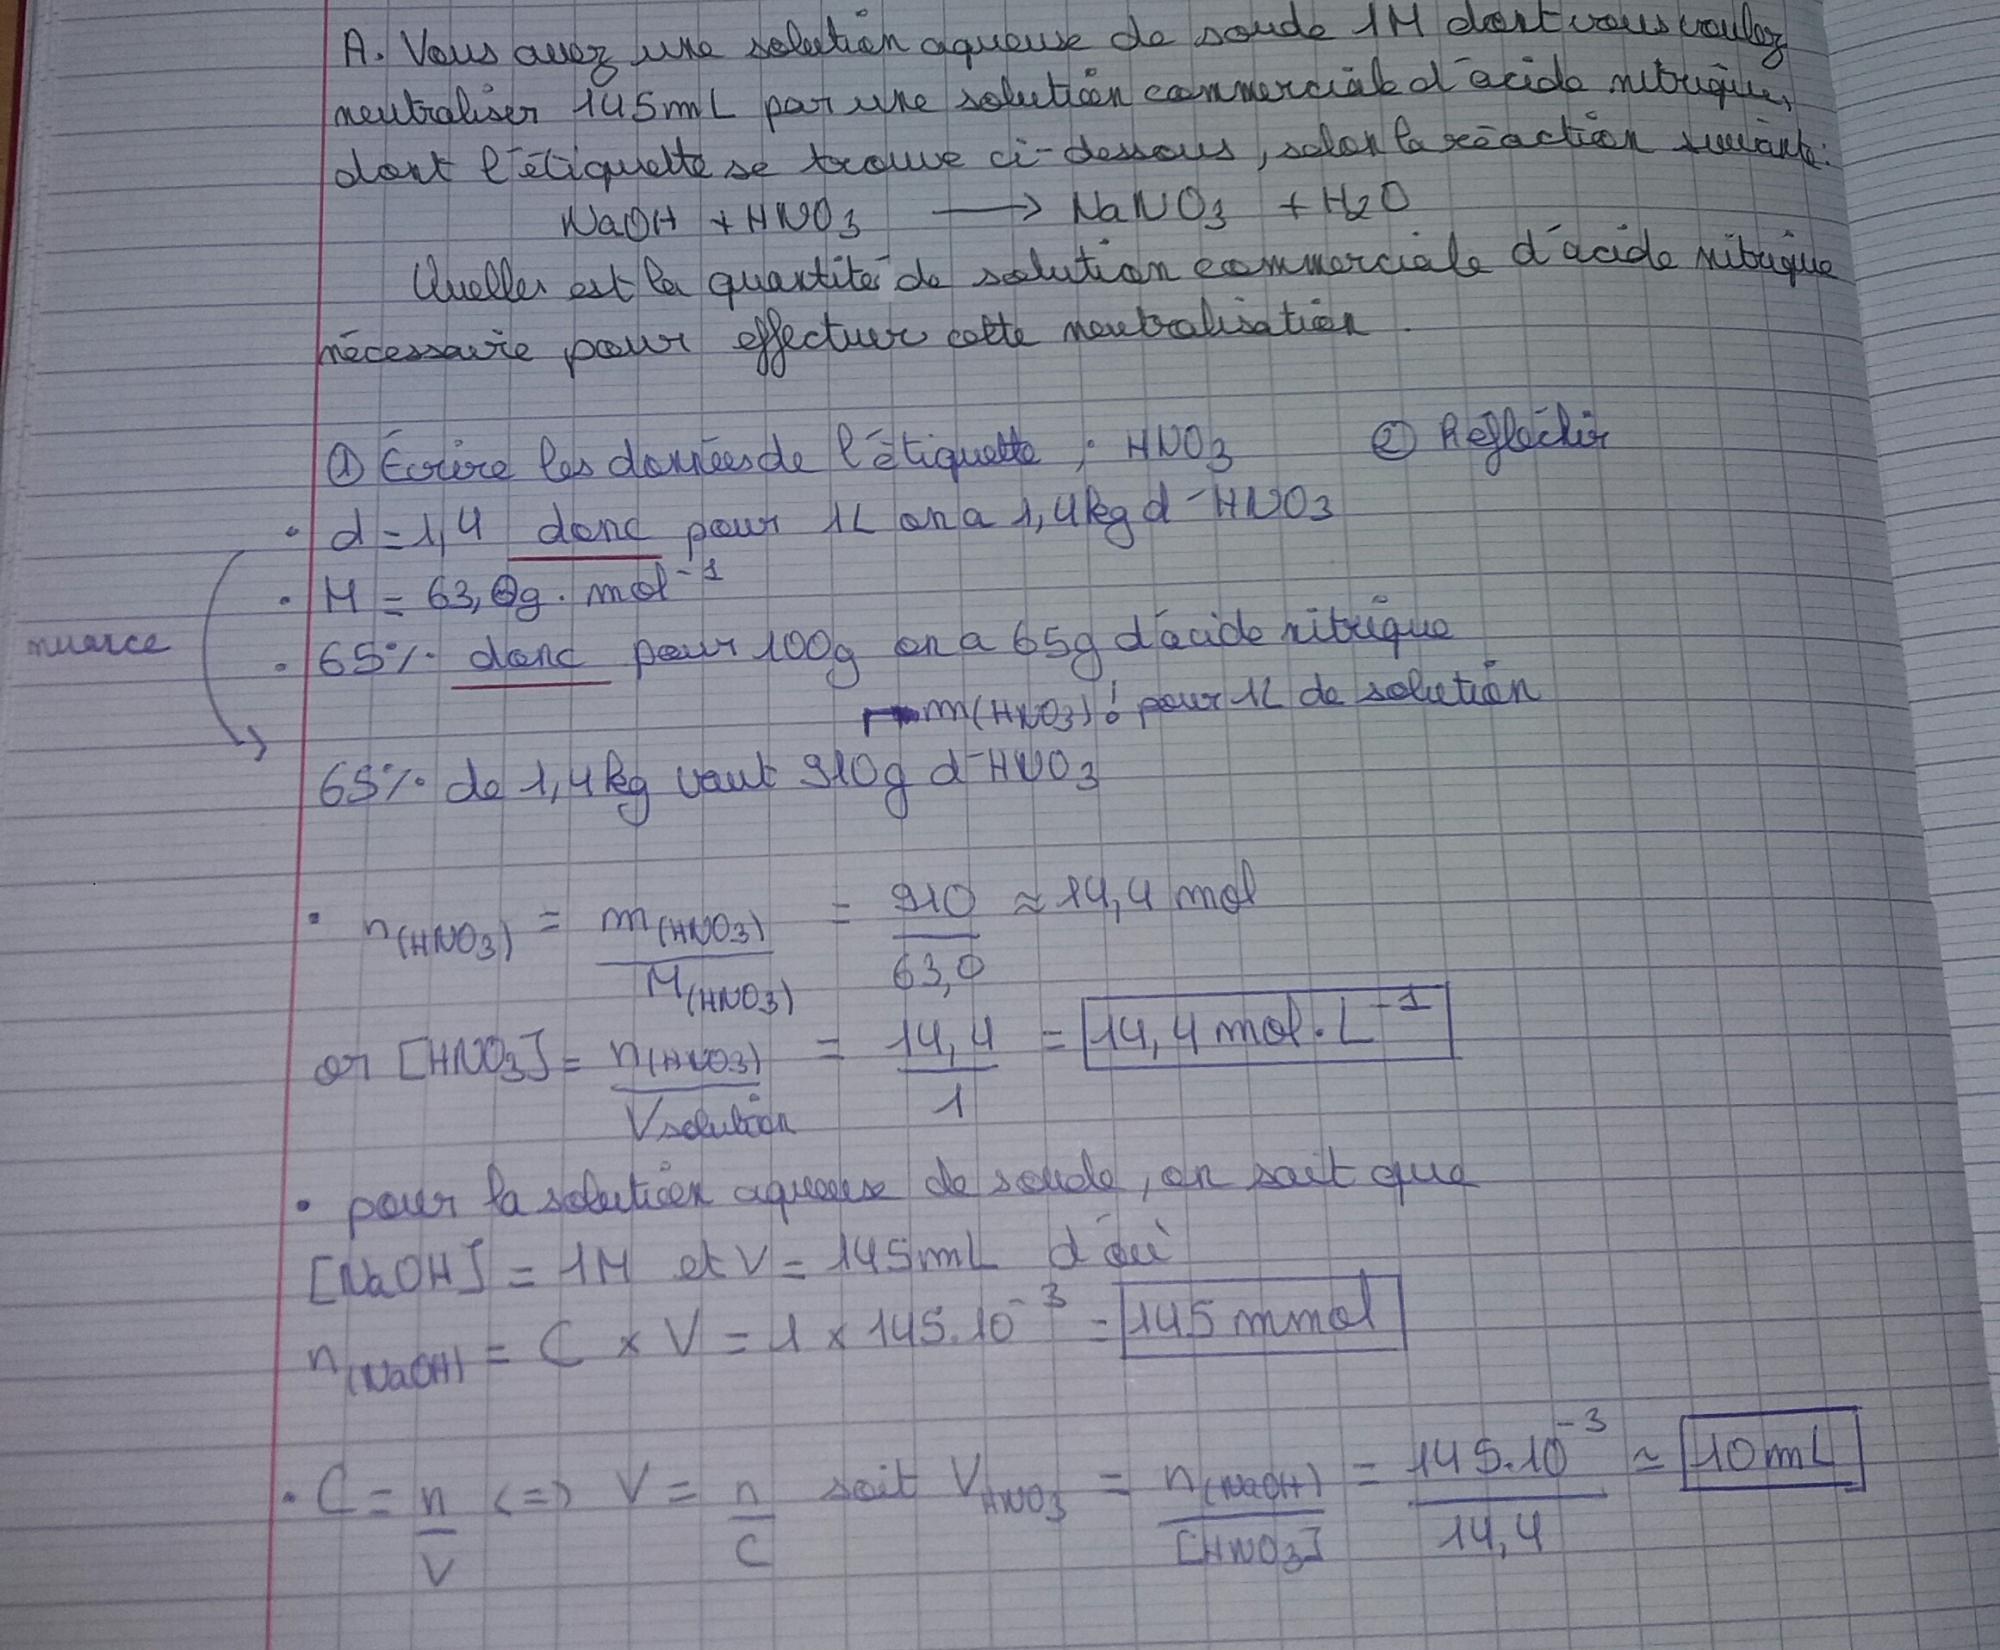 A. Vous avez une solution aqueuse de soude 1M dont vous voulez
neutraliser 145mL par une solution commerciale d'acide nitrique,
dont l'étiquette se trouve ci-dessous, selon la réaction suivante:
NaOH + HNO3 → NaNO3 + H2O
Quelles est la quantité de solution commerciale d'acide nitrique
nécessaire pour effectuer cette neutralisation.
① Écrire les données de l'étiquette ; HNO3 ② Réfléchir
• d = 1,4 donc pour 1L on a 1,4kg d'HNO3
• M = 63,0g. mol⁻¹
nuance
• 65% donc pour 100g on a 65g d'acide nitrique
m(HNO3) : pour 1L de solution
65% de 1,4kg vaut 910g d'HNO3
• n(HNO3) = m(HNO3) / M(HNO3) = 910 / 63,0 ≈ 14,4 mol
or [HNO3] = n(HNO3) / Vsolution = 14,4 / 1 = 14,4 mol.L⁻¹
• pour la solution aqueuse de soude, on sait que
[NaOH] = 1M et V = 145mL d'où
n(NaOH) = C × V = 1 × 145.10⁻³ = 145 mmol
• C = n / V <=> V = n / C soit VHNO3 = n(NaOH) / [HNO3] = 145.10⁻³ / 14,4 ≈ 10mL